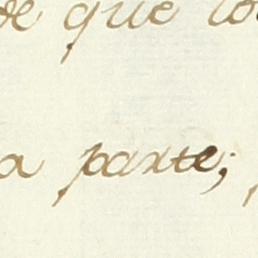 de que
a parte;